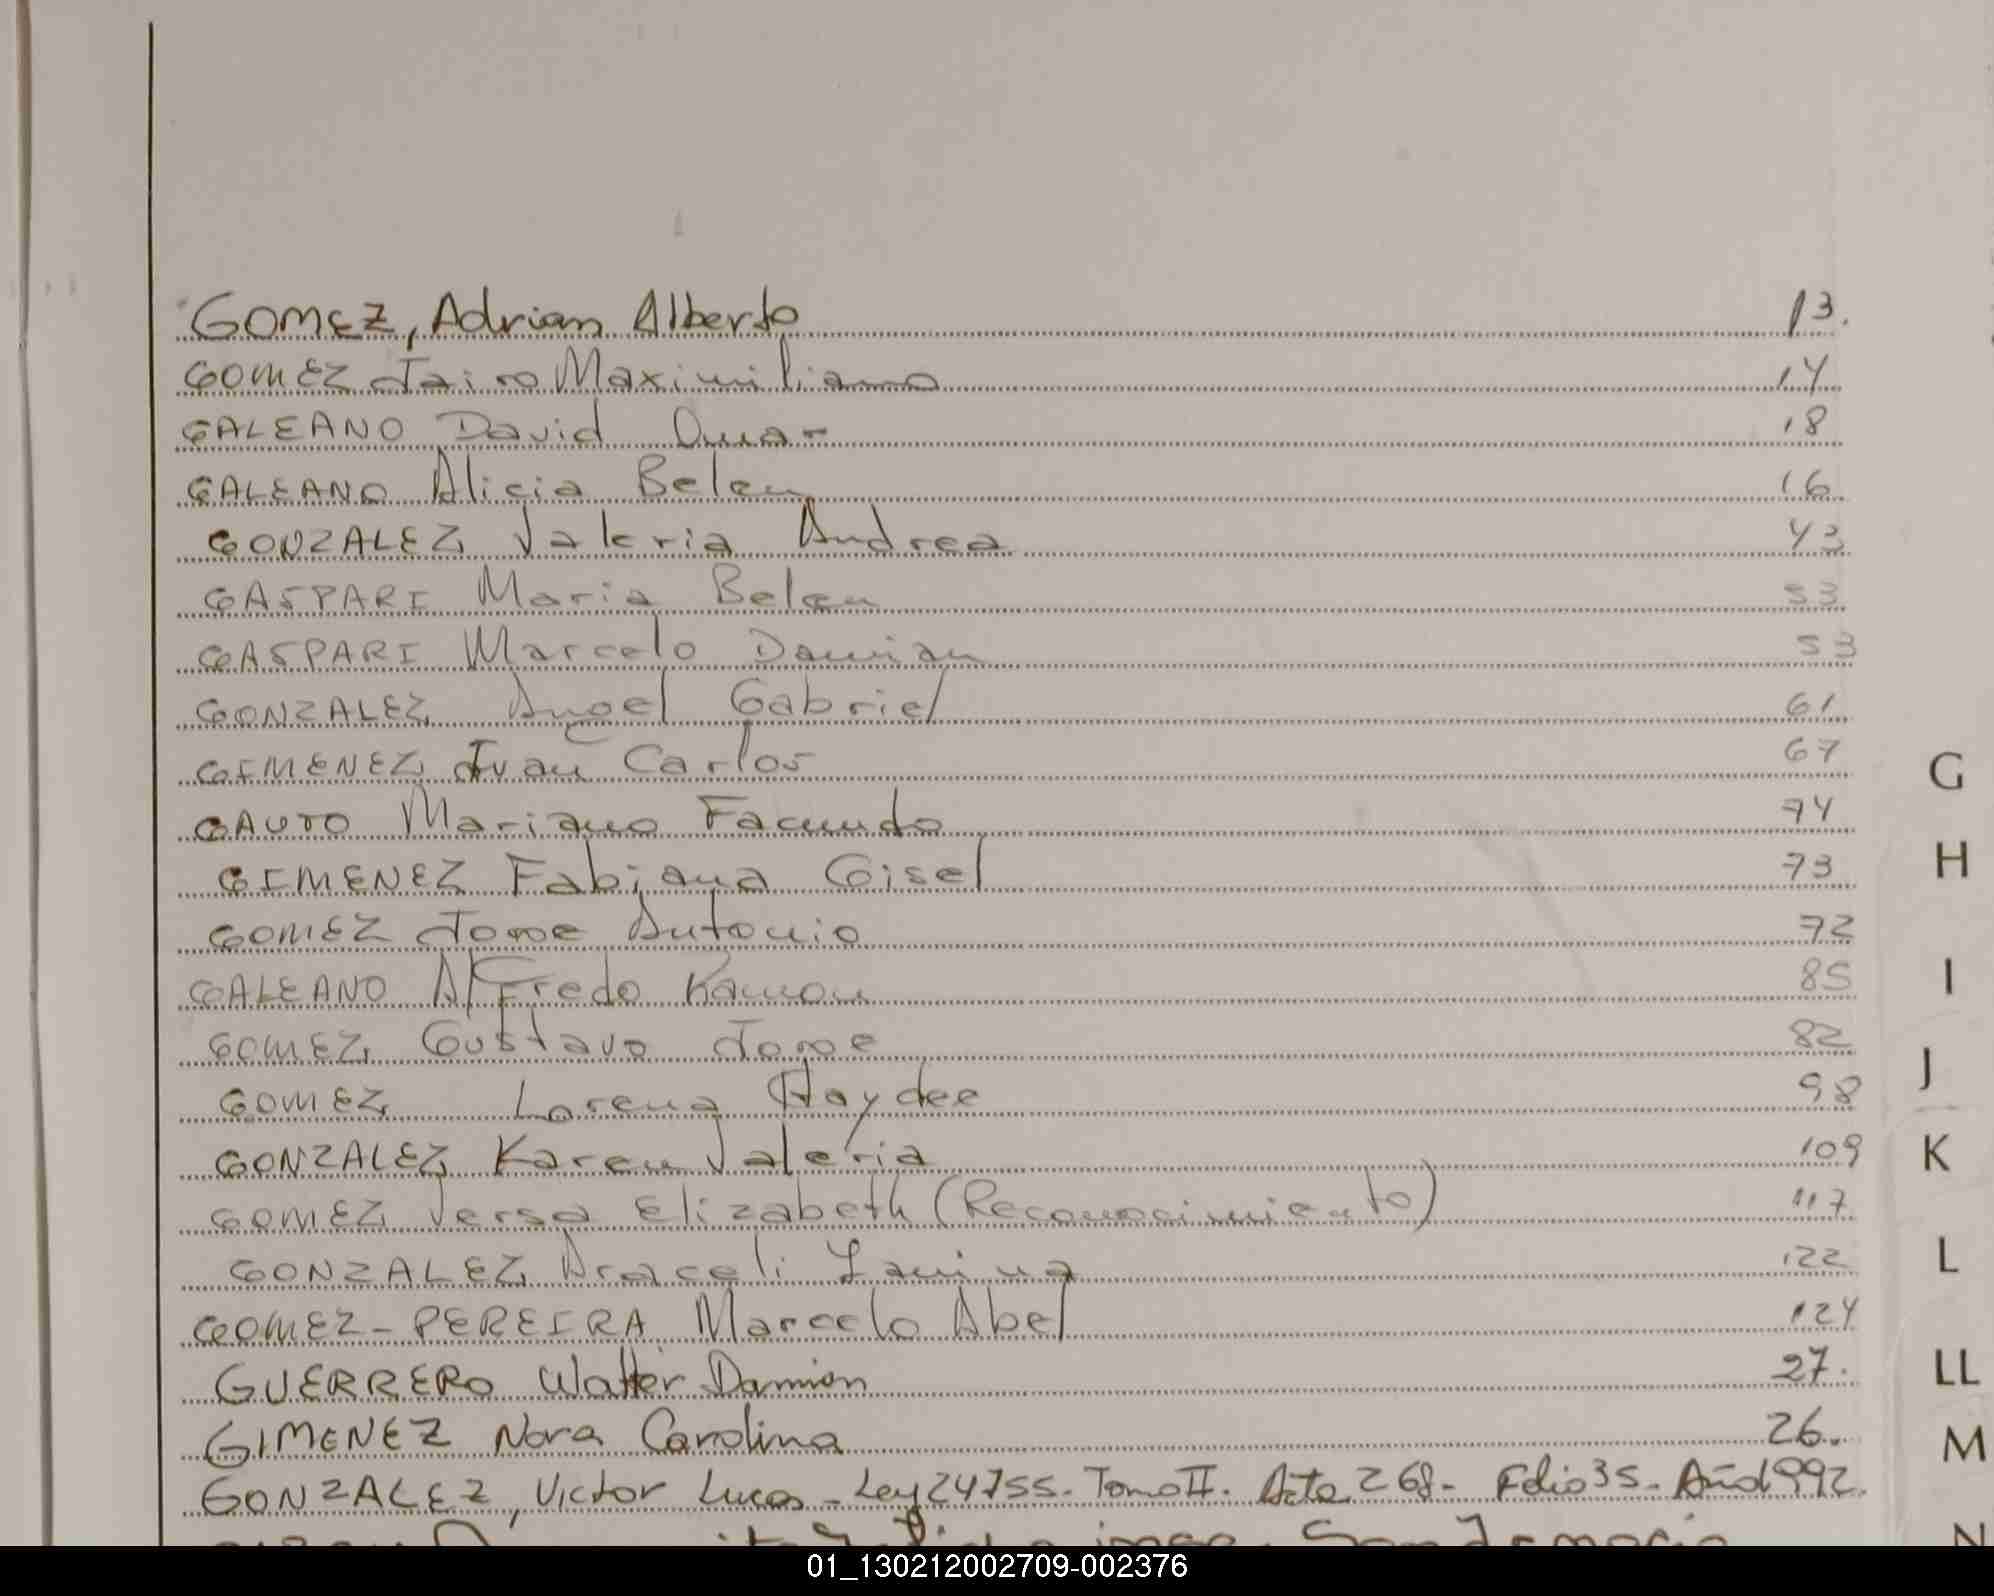 GOMEZ, Adrian Alberto 13.
GOMEZ Jairo Maximiliano 14
GALEANO David Omar 18
GALEANO Alicia Belen 16
GONZALEZ Valeria Andrea 43
GASPARI Maria Belen 53
GASPARI Marcelo Damian 53
GONZALEZ Angel Gabriel 61
GIMENEZ Ivan Carlos 67
G
GAUTO Mariano Facundo 74
H
GIMENEZ Fabiana Gisel 73
GOMEZ Jorge Antonio 72
I
GALEANO Alfredo Ramon 85
GOMEZ Gustavo Jorge 82
J
GOMEZ Lorena Haydee 98
GONZALEZ Karen Valeria 109
K
GOMEZ Elizabeth (Reconocimiento) 117
L
GONZALEZ Araceli Yanina 122
GOMEZ-PEREIRA Marcelo Abel 124
GUERRERO Walter Damian 27.
LL
GIMENEZ Nora Carolina 26.
M
GONZALEZ, Victor Lucas - Ley 24755. Tomo II. Acta 268 - Folio 35 - Año 1992.
N
01_130212002709-002376